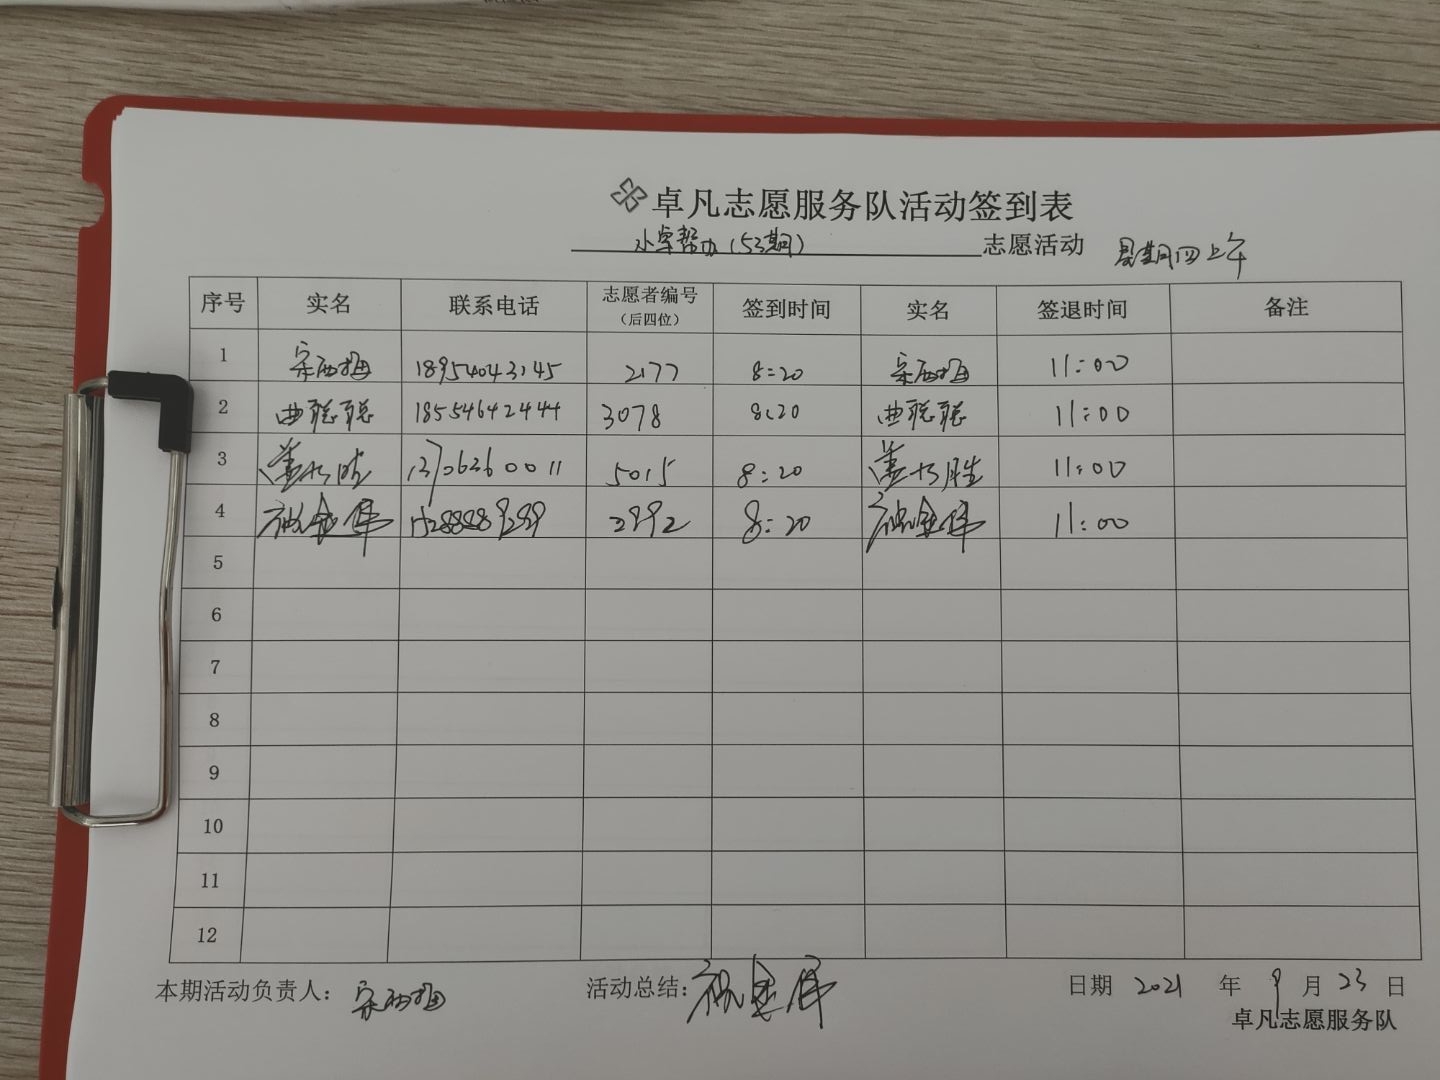 卓凡志愿服务队活动签到表
小卓帮办(53期) 志愿活动 星期四上午
序号 实名 联系电话 志愿者编号(后四位) 签到时间 实名 签退时间 备注
1 宋西梅 18954043145 2177 8:20 宋西梅 11:00
2 曲聪聪 18554642444 3078 8:20 曲聪聪 11:00
3 13706360011 5015 8:20 11:00
4 2992 8:20 11:00
5
6
7
8
9
10
11
12
本期活动负责人: 宋西梅 活动总结: 日期 2021 年 9 月 23 日
卓凡志愿服务队